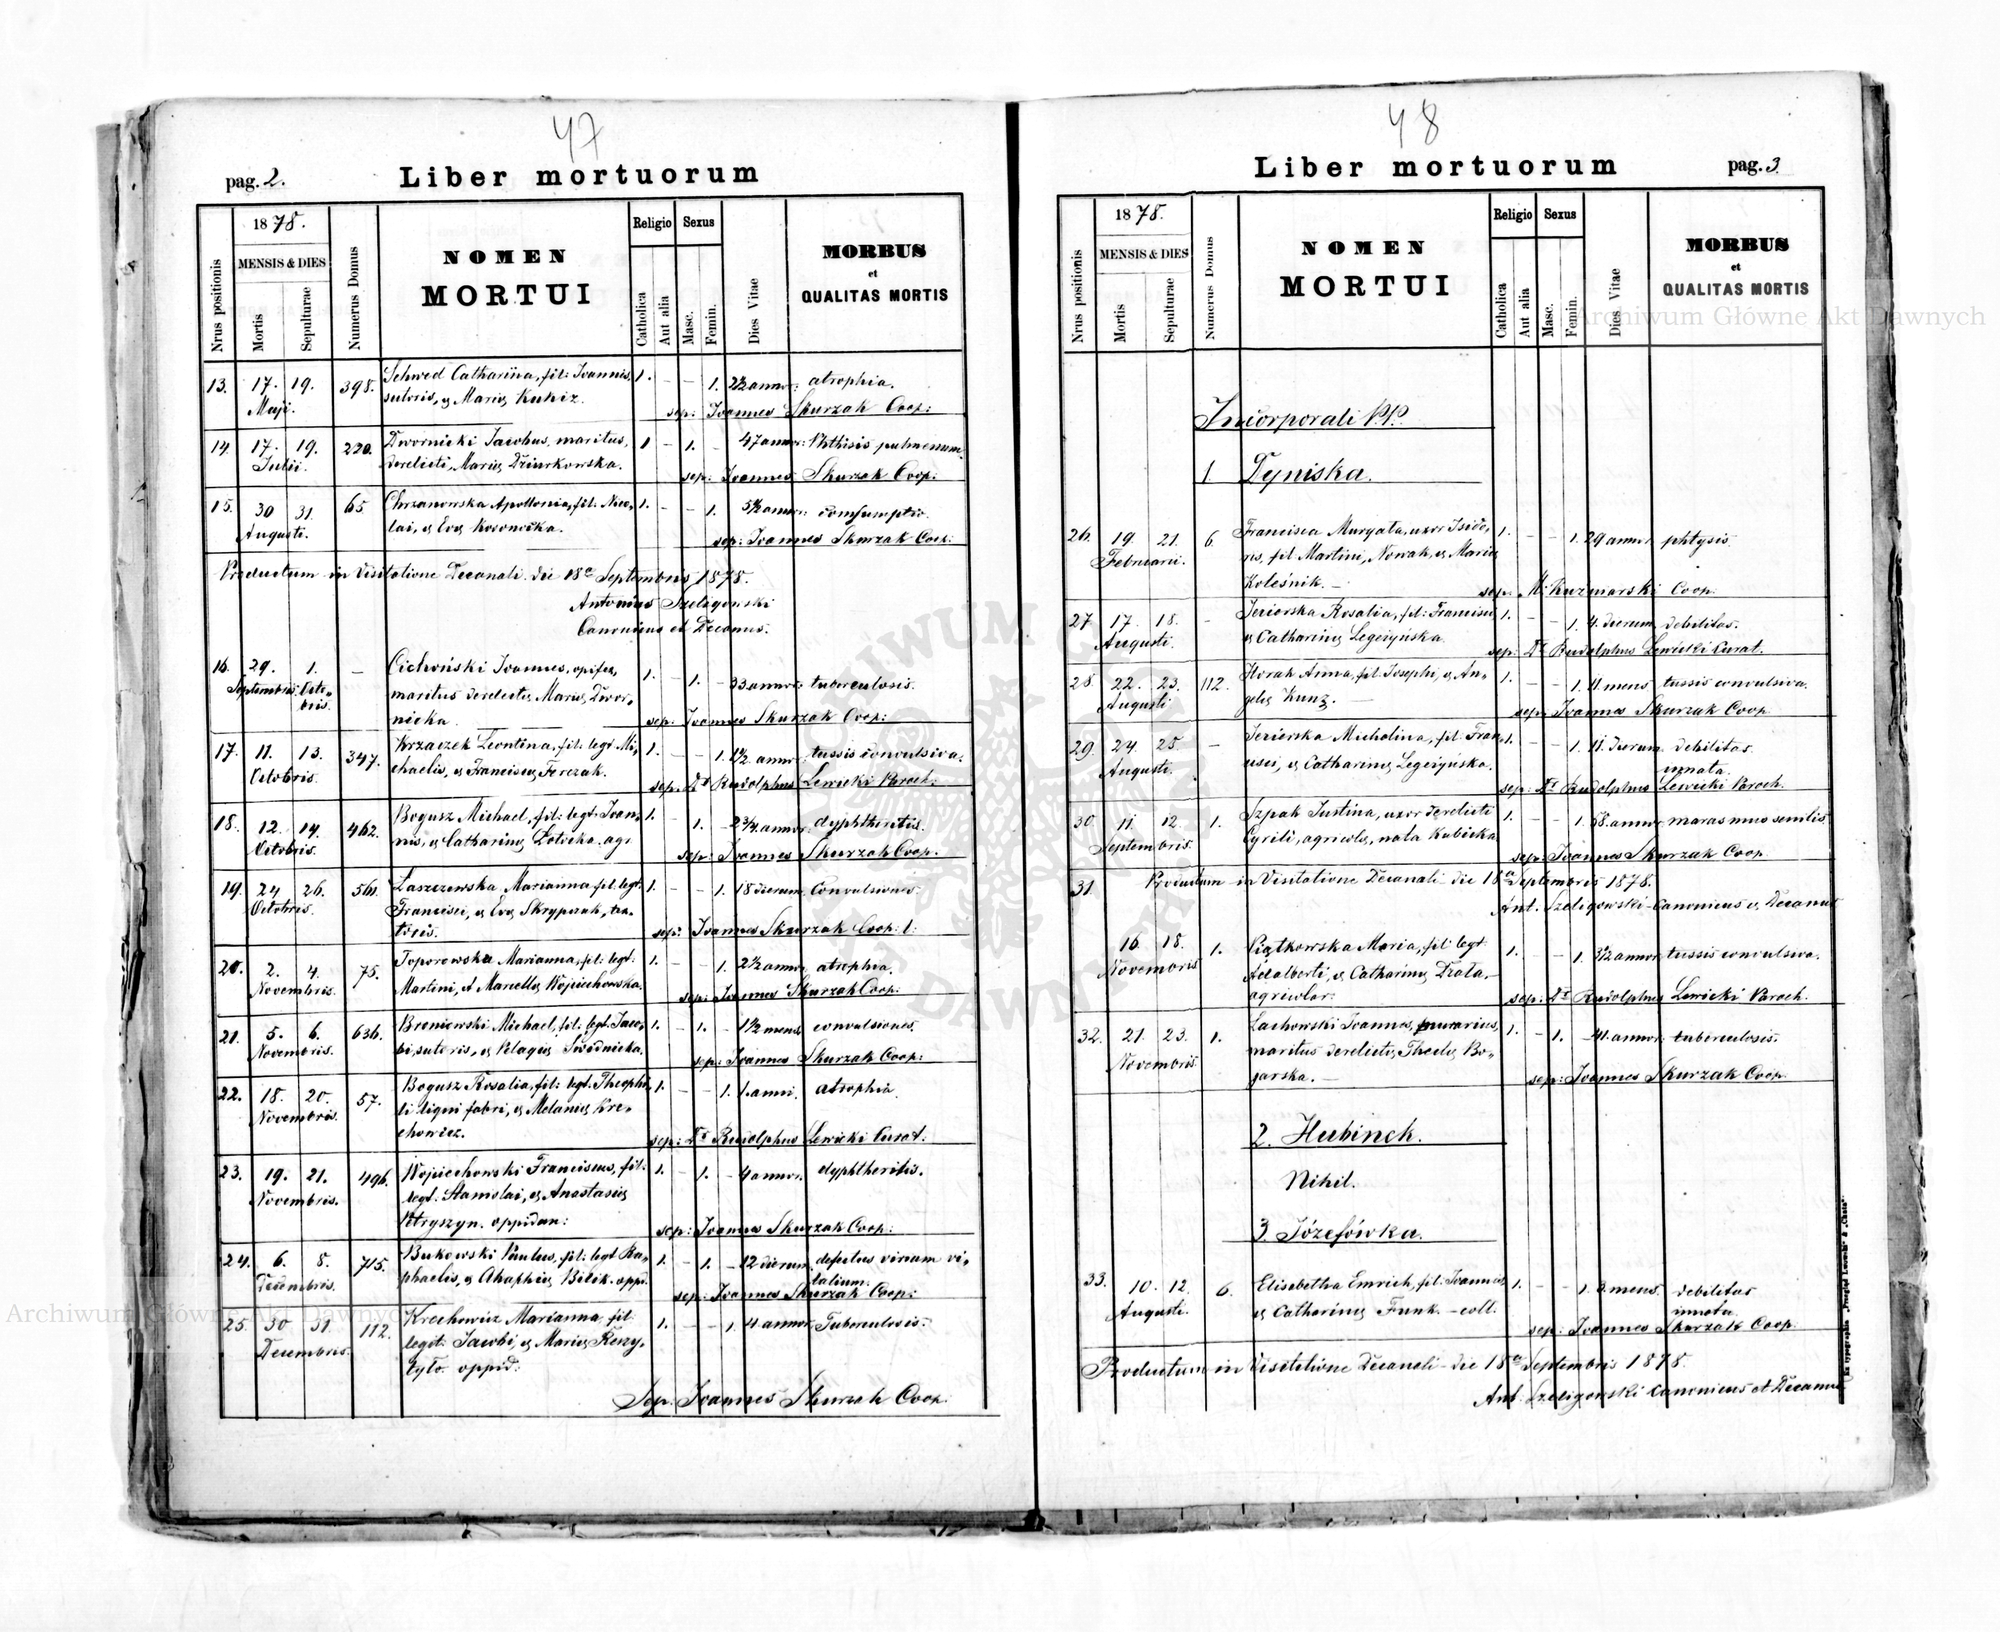 47
pag. 2.
Liber mortuorum
Nrus positionis
1878.
MENSIS & DIES
Mortis
Sepulturae
Numerus Domus
NOMEN
MORTUI
Religio
Catholica
Aut alia
Sexus
Masc.
Femin.
Dies Vitae
MORBUS
et
QUALITAS MORTIS
13. 17. 19. 398. Schwed Catharina, fil: Joannis, 1. – – 1. 2½ annor: atrophia.
Maji. sutoris, & Mariæ Kukiz.
sep: Joannes Skurzak Coop:
14. 17. 19. 220. Dwornicki Jacobus, maritus, 1 – 1. – 47 annor: Phthisis pulmonum.
Julii. derelicti, Mariæ Dziurkowska.
sep: Joannes Skurzak Coop:
15. 30 31. 65 Chrzanowska Apollonia, fil. Nico- 1. – – 1. 5½ annor: consumptio.
Augusti. lai, & Evæ Koronocka.
sep: Joannes Skurzak Coop:
Productum in Visitatione Decanali die 18a Septembris 1878.
Antonius Szeligowski
Canonicus et Decanus.
16. 29. 1. – Cichoński Joannes, opifex, 1. – 1. – 33 annor: tuberculosis.
Septembris. Octo- maritus derelictæ Mariæ Dwor-
bris. nicka.
sep: Joannes Skurzak Coop:
17. 11. 13. 347. Krzaczek Leontina, fil: legt. Mi- 1. – – 1. 1½ annor: tussis convulsiva.
Octobris. chaelis, & Franciscæ Ferczak.
sep: Dr Rudolphus Lewicki Paroch:
18. 12. 14. 462. Bogusz Michael, fil: legt. Joan- 1. – 1. – 2¾ annor. dyphtheritis.
Octobris. nis, & Catharinæ Lotocka. agr.
sep: Joannes Skurzak Coop:
19. 24 26. 561. Laszczewska Marianna fil. legt. 1. – – 1. 18 dierum. Convulsiones
Octobris. Francisci, & Evæ Skrypczak, tex-
toris.
sep: Joannes Skurzak Coop:
20. 2. 4. 75. Toporowska Marianna, fil: legt: 1. – – 1. 2½ annor. atrophia.
Novembris. Martini, & Marcellæ Wojciechowska.
sep: Joannes Skurzak Coop:
21. 5. 6. 636. Broniewski Michael, fil: legt. Jaco- 1. – 1. – 1½ mens. convulsiones.
Novembris. bi, sutoris, & Pelagiæ Swidnicka.
sep: Joannes Skurzak Coop:
22. 18. 20. 57. Bogusz Rosalia, fil: legt. Theophi- 1. – – 1. 1. anni. atrophia.
Novembris. li ligni fabri, & Melaniæ Kre-
chowicz.
sep: Dr Rudolphus Lewicki Curat:
23. 19. 21. 496. Wojciechowski Franciscus, fil: 1. – 1. – 4 annor. dyphtheritis.
Novembris. legt. Stanislai, & Anastasiæ
Petryszyn. oppidan:
sep: Joannes Skurzak Coop:
24. 6. 8. 715. Bukowski Paulus, fil: legt Ra- 1. – 1. – 12 dierum. defectus virium vi-
Decembris. phaelis, & Ahaphiæ Bilik. oppi. talium.
sep: Joannes Skurzak Coop:
25. 30 31. 112. Krechowicz Marianna, fil: 1. – – 1. 4 annor. Tuberculosis.
Decembris. legit: Jacobi, & Mariæ
oppid:
Sep: Joannes Skurzak Coop.
48
Liber mortuorum
pag. 3.
Nrus positionis
1878.
MENSIS & DIES
Mortis
Sepulturae
Numerus Domus
NOMEN
MORTUI
Religio
Catholica
Aut alia
Sexus
Masc.
Femin.
Dies Vitae
MORBUS
et
QUALITAS MORTIS
Incorporati P.P.
1. Tyniska.
26. 19. 21. 6. Francisca Murgata, uxor Isido- 1. – – 1. 29 annor phtysis.
Februarii. ris, fil Martini, Nowak, & Mariæ
Koleśnik. –
sep: M. Kuźniarski Coop:
27 17. 18. – Jeziorska Rosalia, fil: Francisci 1. – – 1. 4. dierum debilitas.
Augusti. & Catharinæ Legeżyńska.
sep: Dr Rudolphus Lewicki Curat.
28. 22. 23. 112. Horak Anna, fil. Josephi, & An- 1. – – 1. 11. mens tussis convulsiva.
Augusti gelæ Kunz. –
sep: Joannes Skurzak Coop
29. 24. 25. – Jezierska Micholina, fil: Fran- 1. – – 1. 11. dierum debilitas
Augusti. cisci, & Catharinæ Legeżyńska.
sep: Dr Rudolphus Lewicki Paroch.
30. 11. 12. 1. Szpak Justina, uxor derelicti 1. – – 1. 58. annor. marasmus senilis.
Septembris. Cyrili, agricolæ, nata Kubicka
sep: Joannes Skurzak Coop.
31. Productum in Visitatione Decanali die 18a Septembris 1878.
Ant. Szeligowski – Canonicus & Decanus
16. 18. 1. Piątkowska Maria, fil: legt: 1. – – 1. 3½ annor. tussis convulsiva.
Novembris Adalberti, & Catharinæ Drała, –
agricolar:
sep: Dr Rudolphus Lewicki Paroch.
32. 21. 23. 1. Lachowski Joannes, murarius, 1. – 1. – 41. annor: tuberculosis.
Novembris. maritus derelictæ Theclæ Bo-
jarska. –
sep: Joannes Skurzak Coop
2. Hubinek.
Nihil.
3. Józefówka.
33. 10. 12. 6. Elisabetha Emrich, fil. Joannis, 1. – – 1. 3. mens. debilitas
Augusti. & Catharinæ Funk. – coll. innata.
sep: Joannes Skurzak Coop:
Productum in Visitatione Decanali – die 18a Septembris 1878.
Ant. Szeligowski Canonicus et Decanus
Archiwum Główne Akt Dawnych
Archiwum Główne Akt Dawnych